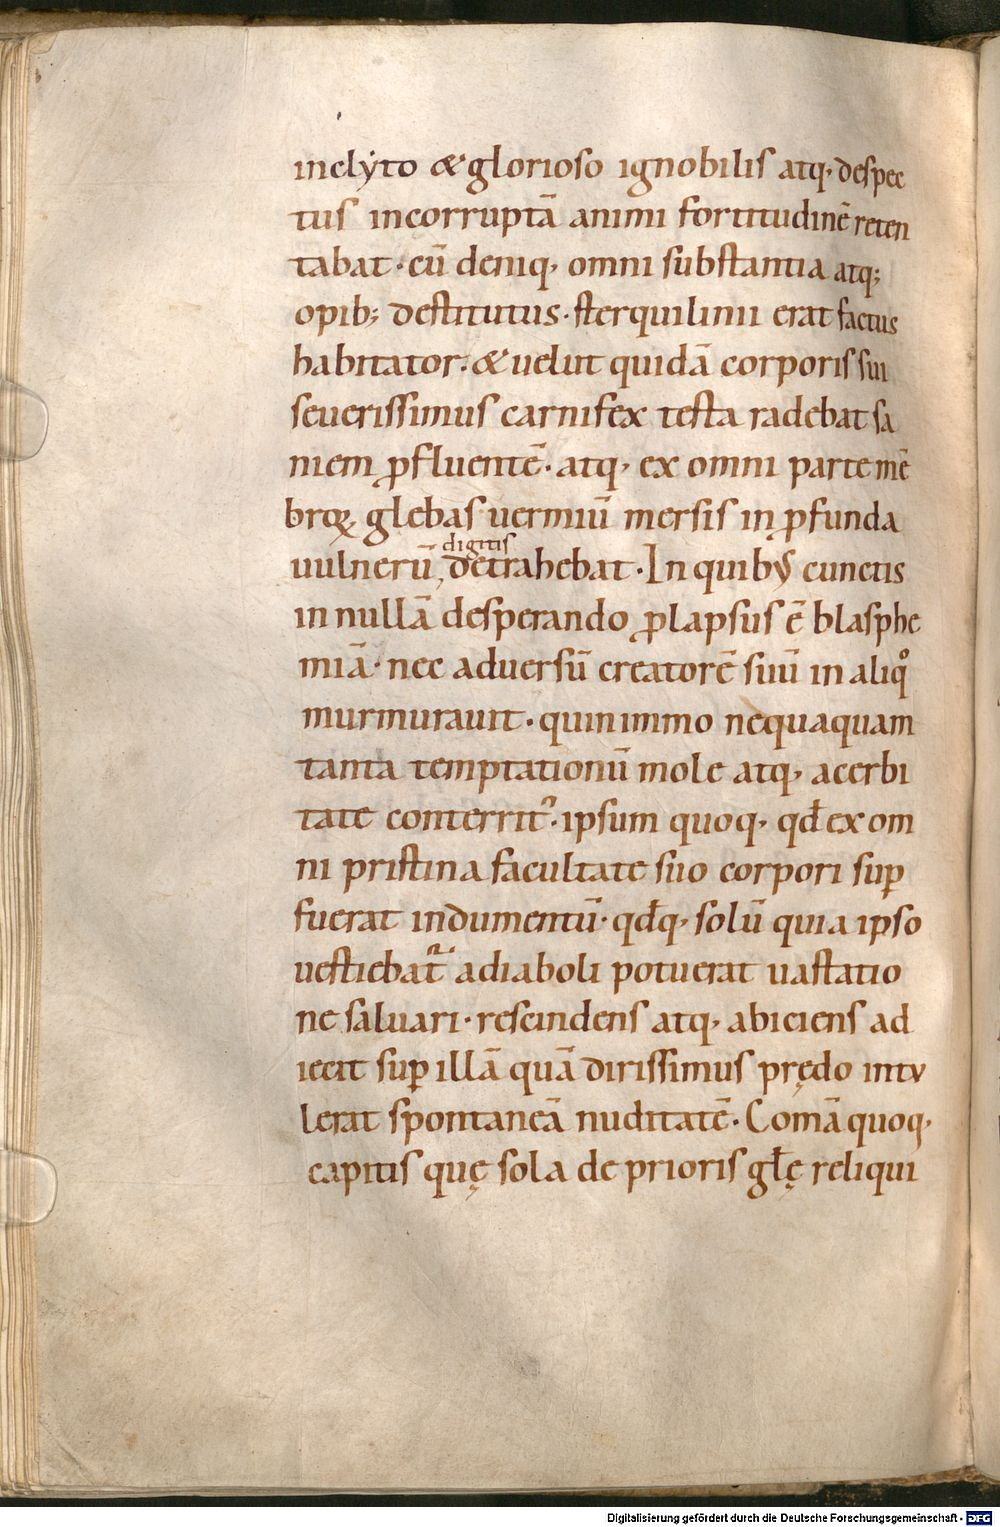 inclẏto & glorioso ignobilis atq· despec
tus incorruptā animi fortitudinē reten
tabat· cū deniq· omni substantia atq;
opib; destitutus· sterquilinii erat factus
habitator· & uelut quidā corporis sui
seuerissimus carnifex testa radebat sa
niem ꝓfluentē· atq· ex omni parte mē
broꝝ glebas uermiū mersis in ꝓfunda
digitis
uulnerū, detrahebat· In quibus cunctis
in nullā desperando ꝓlapsus ē blasphe
miā· nec aduersū creatorē suū in aliqͦ
murmurauit· quinimmo nequaquam
tanta temptationū mole atq· acerbi
tate conterrit᾿· ipsum quoq· qđ ex om
ni pristina facultate suo corpori suꝑ
fuerat indumentū· qđq· solū quia ipso
uestiebat᷑ a diaboli potuerat uastatio
ne saluari· rescindens atq· abiciens ad
iecit suꝑ illā quā dirissimus prędo intu
lerat spontaneā nuditatē· Comā quoq·
capitis quę sola de prioris głę reliqui
Digitalisierung gefördert durch die Deutsche Forschungsgemeinschaft - DFG